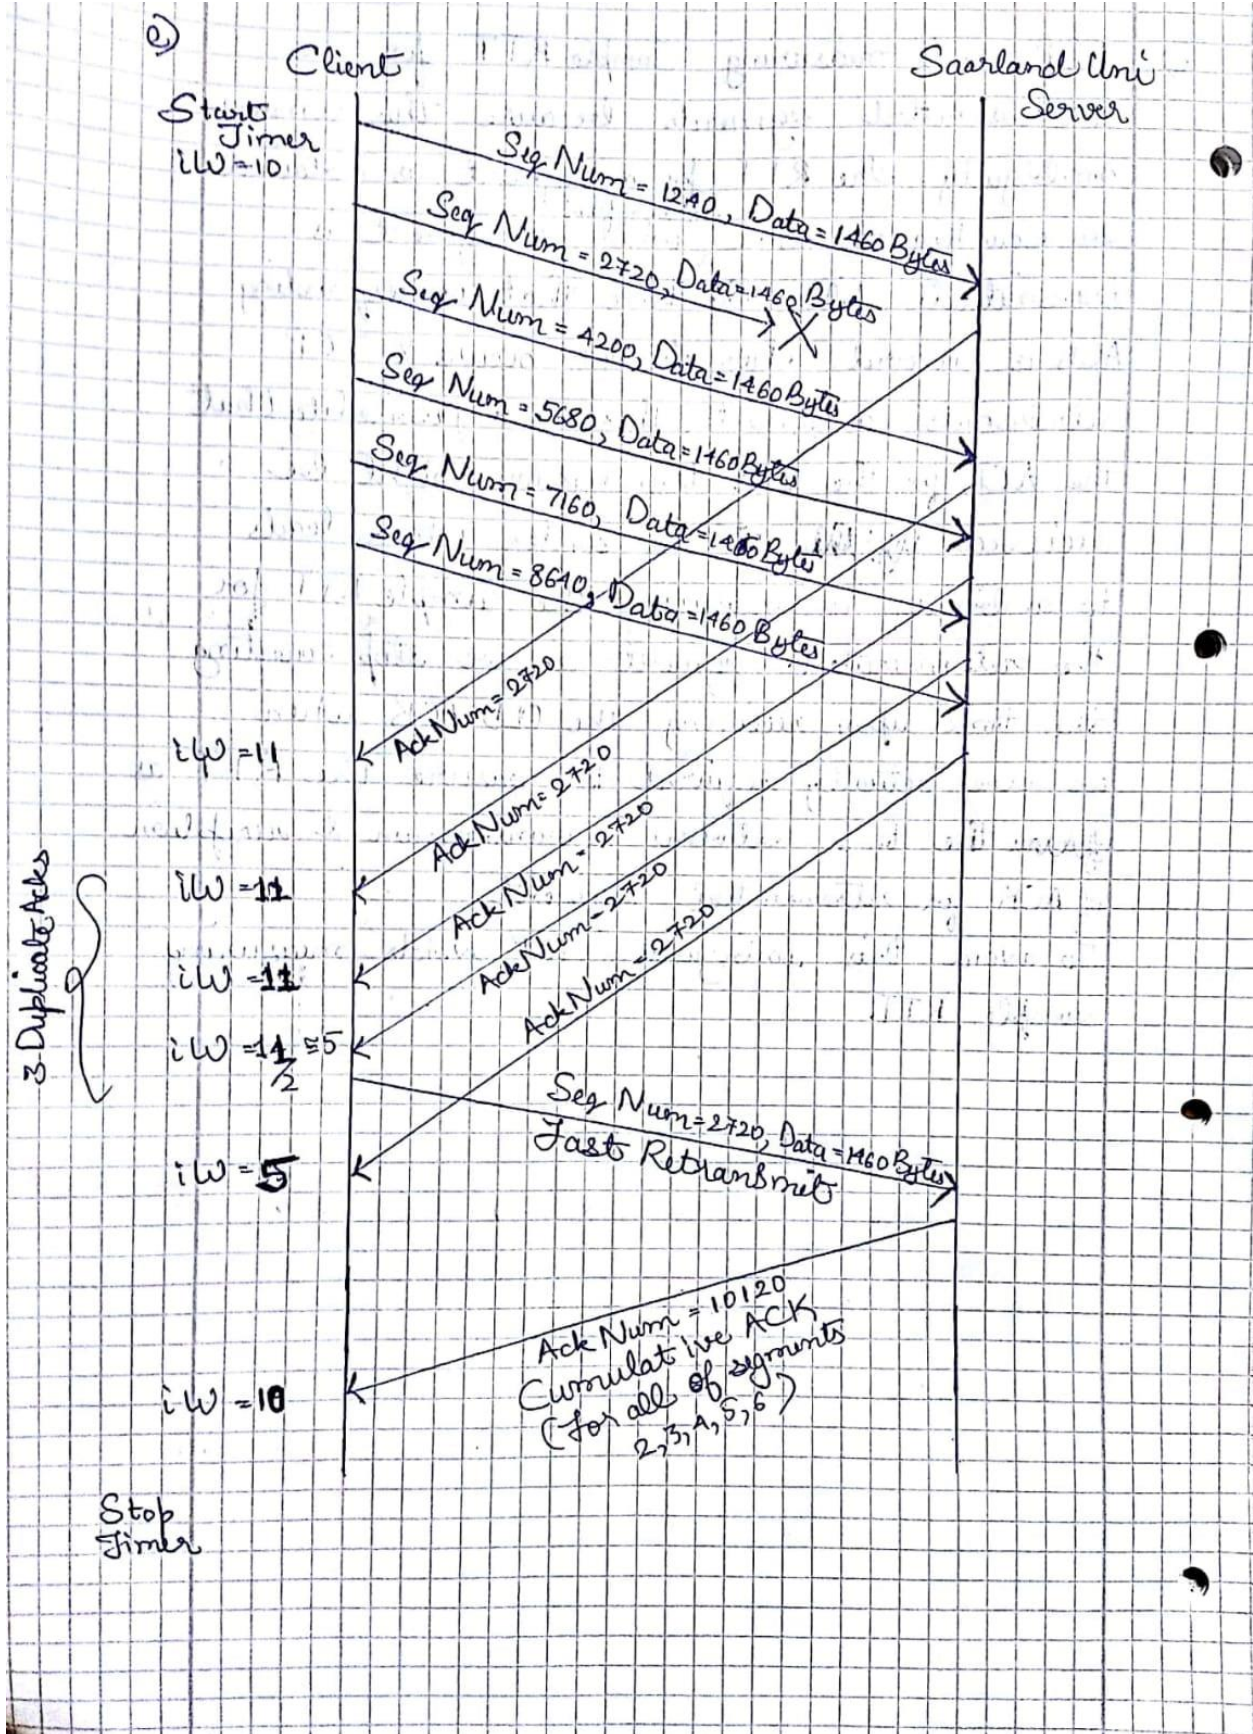 e)
Client
Saarland Uni
Server
Start
Timer
iW=10
Seq Num = 1240, Data = 1460 Bytes
Seq Num = 2720, Data=1460 Bytes
X
Seq Num = 4200, Data=1460 Bytes
Seq Num = 5680, Data=1460 Bytes
Seq Num = 7160, Data=1460 Bytes
Seq Num = 8640, Data=1460 Bytes
Ack Num = 2720
iW=11
Ack Num = 2720
iW=11
Ack Num = 2720
iW=11
Ack Num = 2720
iW=11/2 ≅5
Ack Num = 2720
3 Duplicate Acks
Seq Num=2720, Data=1460 Bytes
Fast Retransmit
iW=5
Ack Num = 10120
Cumulative ACK
(for all of segments
2,3,4,5,6)
iW=10
Stop
Timer